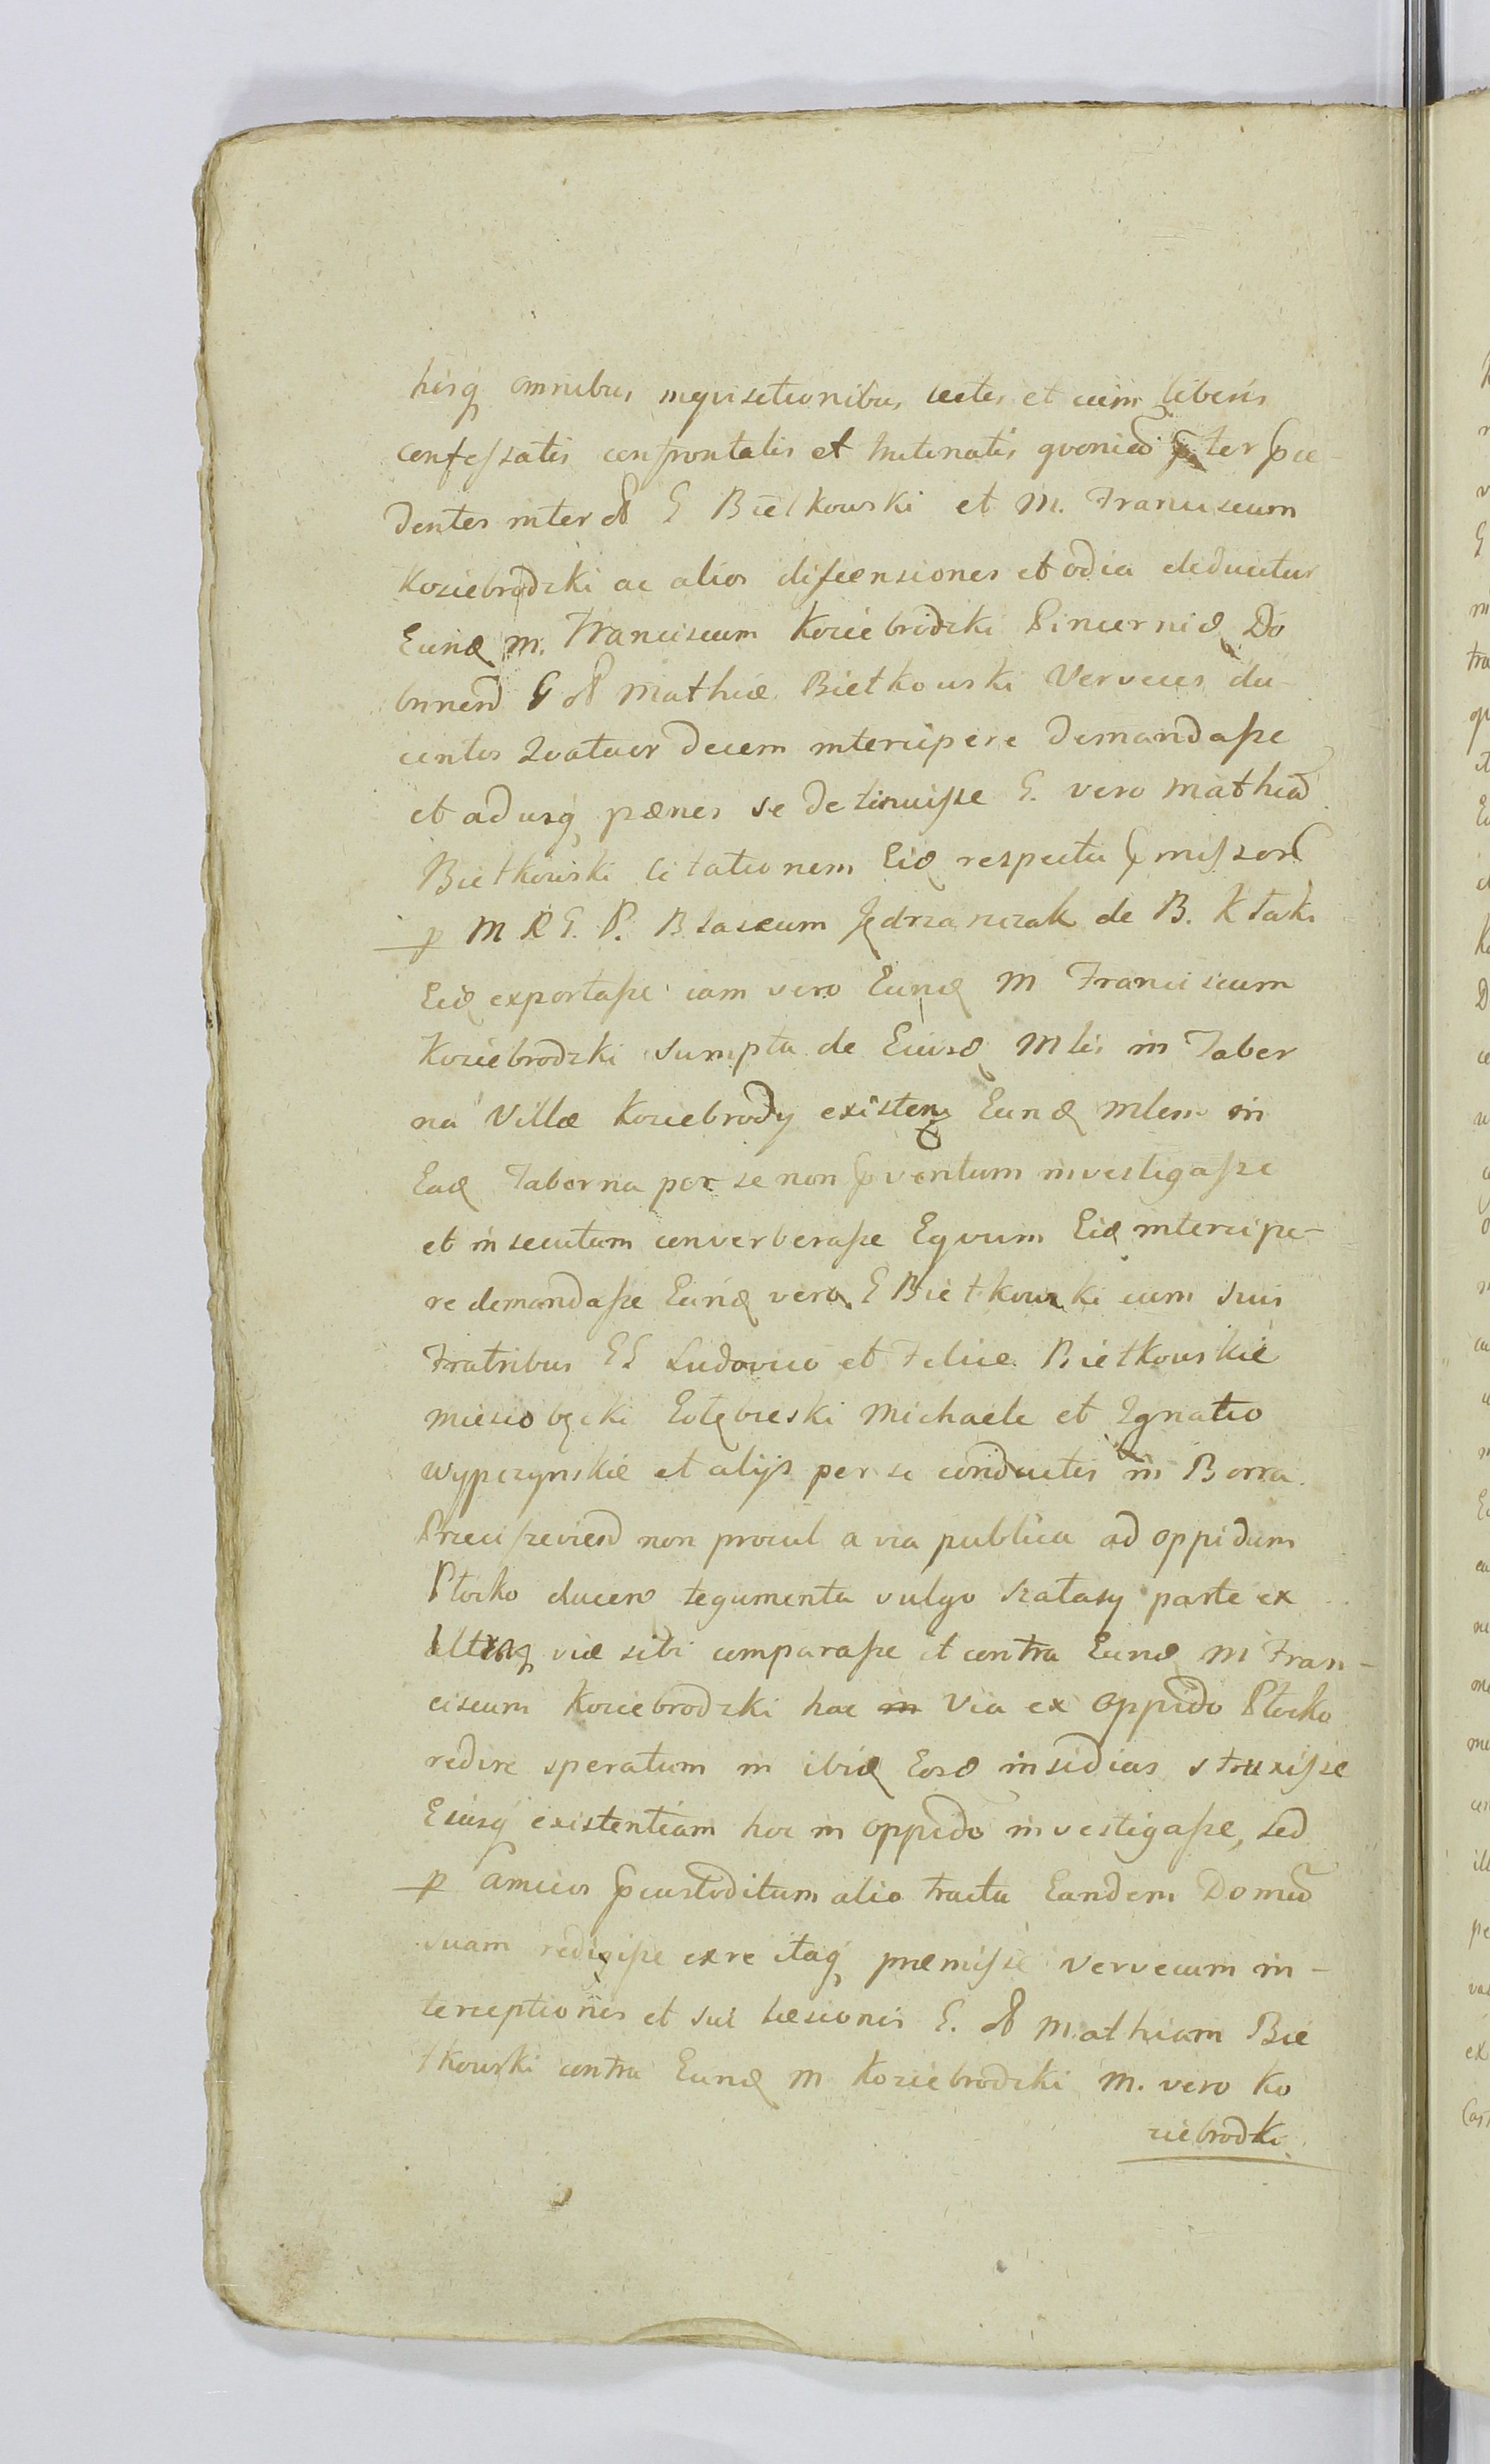 hisq omnibus inquisitionibus lectis et cum liberis
confessatis confrontatis et trutinatis quoniã pter prce-
dentes inter olt G Bietkowski et M. Franciscum
Koziebrodzki ac alios dissensiones et odia deducitur
Eund M. Franciscum Koziebrodzki Pincernid Do
brinen G olt Mathiæ Bietkowski Verveces du-
centos Quatuor decem intercipere demandasse
et adusq pænes se detinuisse G. vero Mathiã
Bietkowski Citationem Eid respectu pmissor
p M R G. P. Blaseum Jędrzanczak de B. Ktaki
Eid exportasse iam vero Eund M Franciscum
Koziebrodzki sumpta de Eiusd Mlis in Taber
na Villæ Koziebrody existen Eund Mlem in
Ead Taberna per se non pventum investigasse
et insecutum converberasse Equum Eid intercipe-
re demandasse Eund vero G Bietkowski cum suis
Fratribus GG Ludovico et Felice Bietkowskie
Mieszobęcki Gołębieski Michaele et Ignatio
Wypczynskie et alijs per se conductis in Borra
Preciszevien non procul a via publica ad oppidum
Płocko ducen tegumenta vulgo szałasy parte ex
Utraq viæ sibi comparasse et contra Eund M Fran-
ciscum Koziebrodzki hac Via ex Oppido Płocko
redire speratum in ibid Eosd insidias struxisse
Eiusq existentiam hoc in oppido investigasse, sed
p amicos pcustoditum alio tractu Eandem Domũ
suam redigisse ex re itaq præmissæ Vervecum in-
terceptionis et sui læsionis G. olt Mathiam Bie
tkowski contra Eund M Koziebrodzki M. vero Ko
ziebrodzki